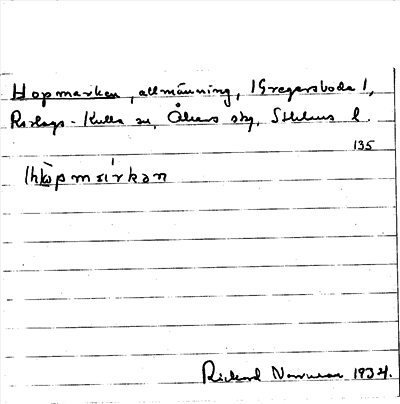 Hopmarken, allmänning, 1 Gregersboda 1,
Roslags-Kulla sn, Åkers skg, Sthlms l.
135
Rickard Norman 1934.